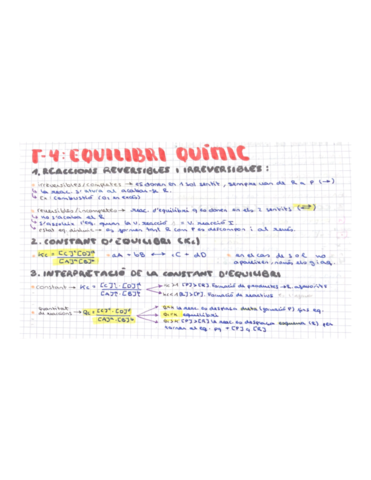 T-4: EQUILIBRI QUÍMIC
1. REACCIONS REVERSIBLES I IRREVERSIBLES:
irreversibles/completes → es donen en 1 sol sentit, sempre van de R a P (→)
la reac. s'atura al acabar-se R.
Ex: combustió (O₂ en excés)
reversibles/incompletes → reac. d'equilibri q es donen en els 2 sentits (⇌)
no s'acaben el R.
s'assoleix l'eq. quan la v. reacció D = v. reacció I.
estat eq. dinàmic → es formen tant R com P es descompon i al revés
2. CONSTANT D'EQUILIBRI (Kc)
Kc = [C]ᶜ[D]ᵈ aA + bB ⟷ cC + dD → en el cas de S o L no
[A]ᵃ[B]ᵇ apareixen, només els g i aq.
3. INTERPRETACIÓ DE LA CONSTANT D'EQUILIBRI
constant → Kc = [C]ᶜ·[D]ᵈ [P]>[R] formació de productes
[A]ᵃ·[B]ᵇ [R]>[P]. Formació de reactius
quantitat de reaccions → Qc = [C]ᶜ·[D]ᵈ la reac. es desplaça dreta (formació P) fins eq.
[A]ᵃ·[B]ᵇ equilibri
[P]>[R] la reac. es desplaça esquerra (R) per
tornar al eq.